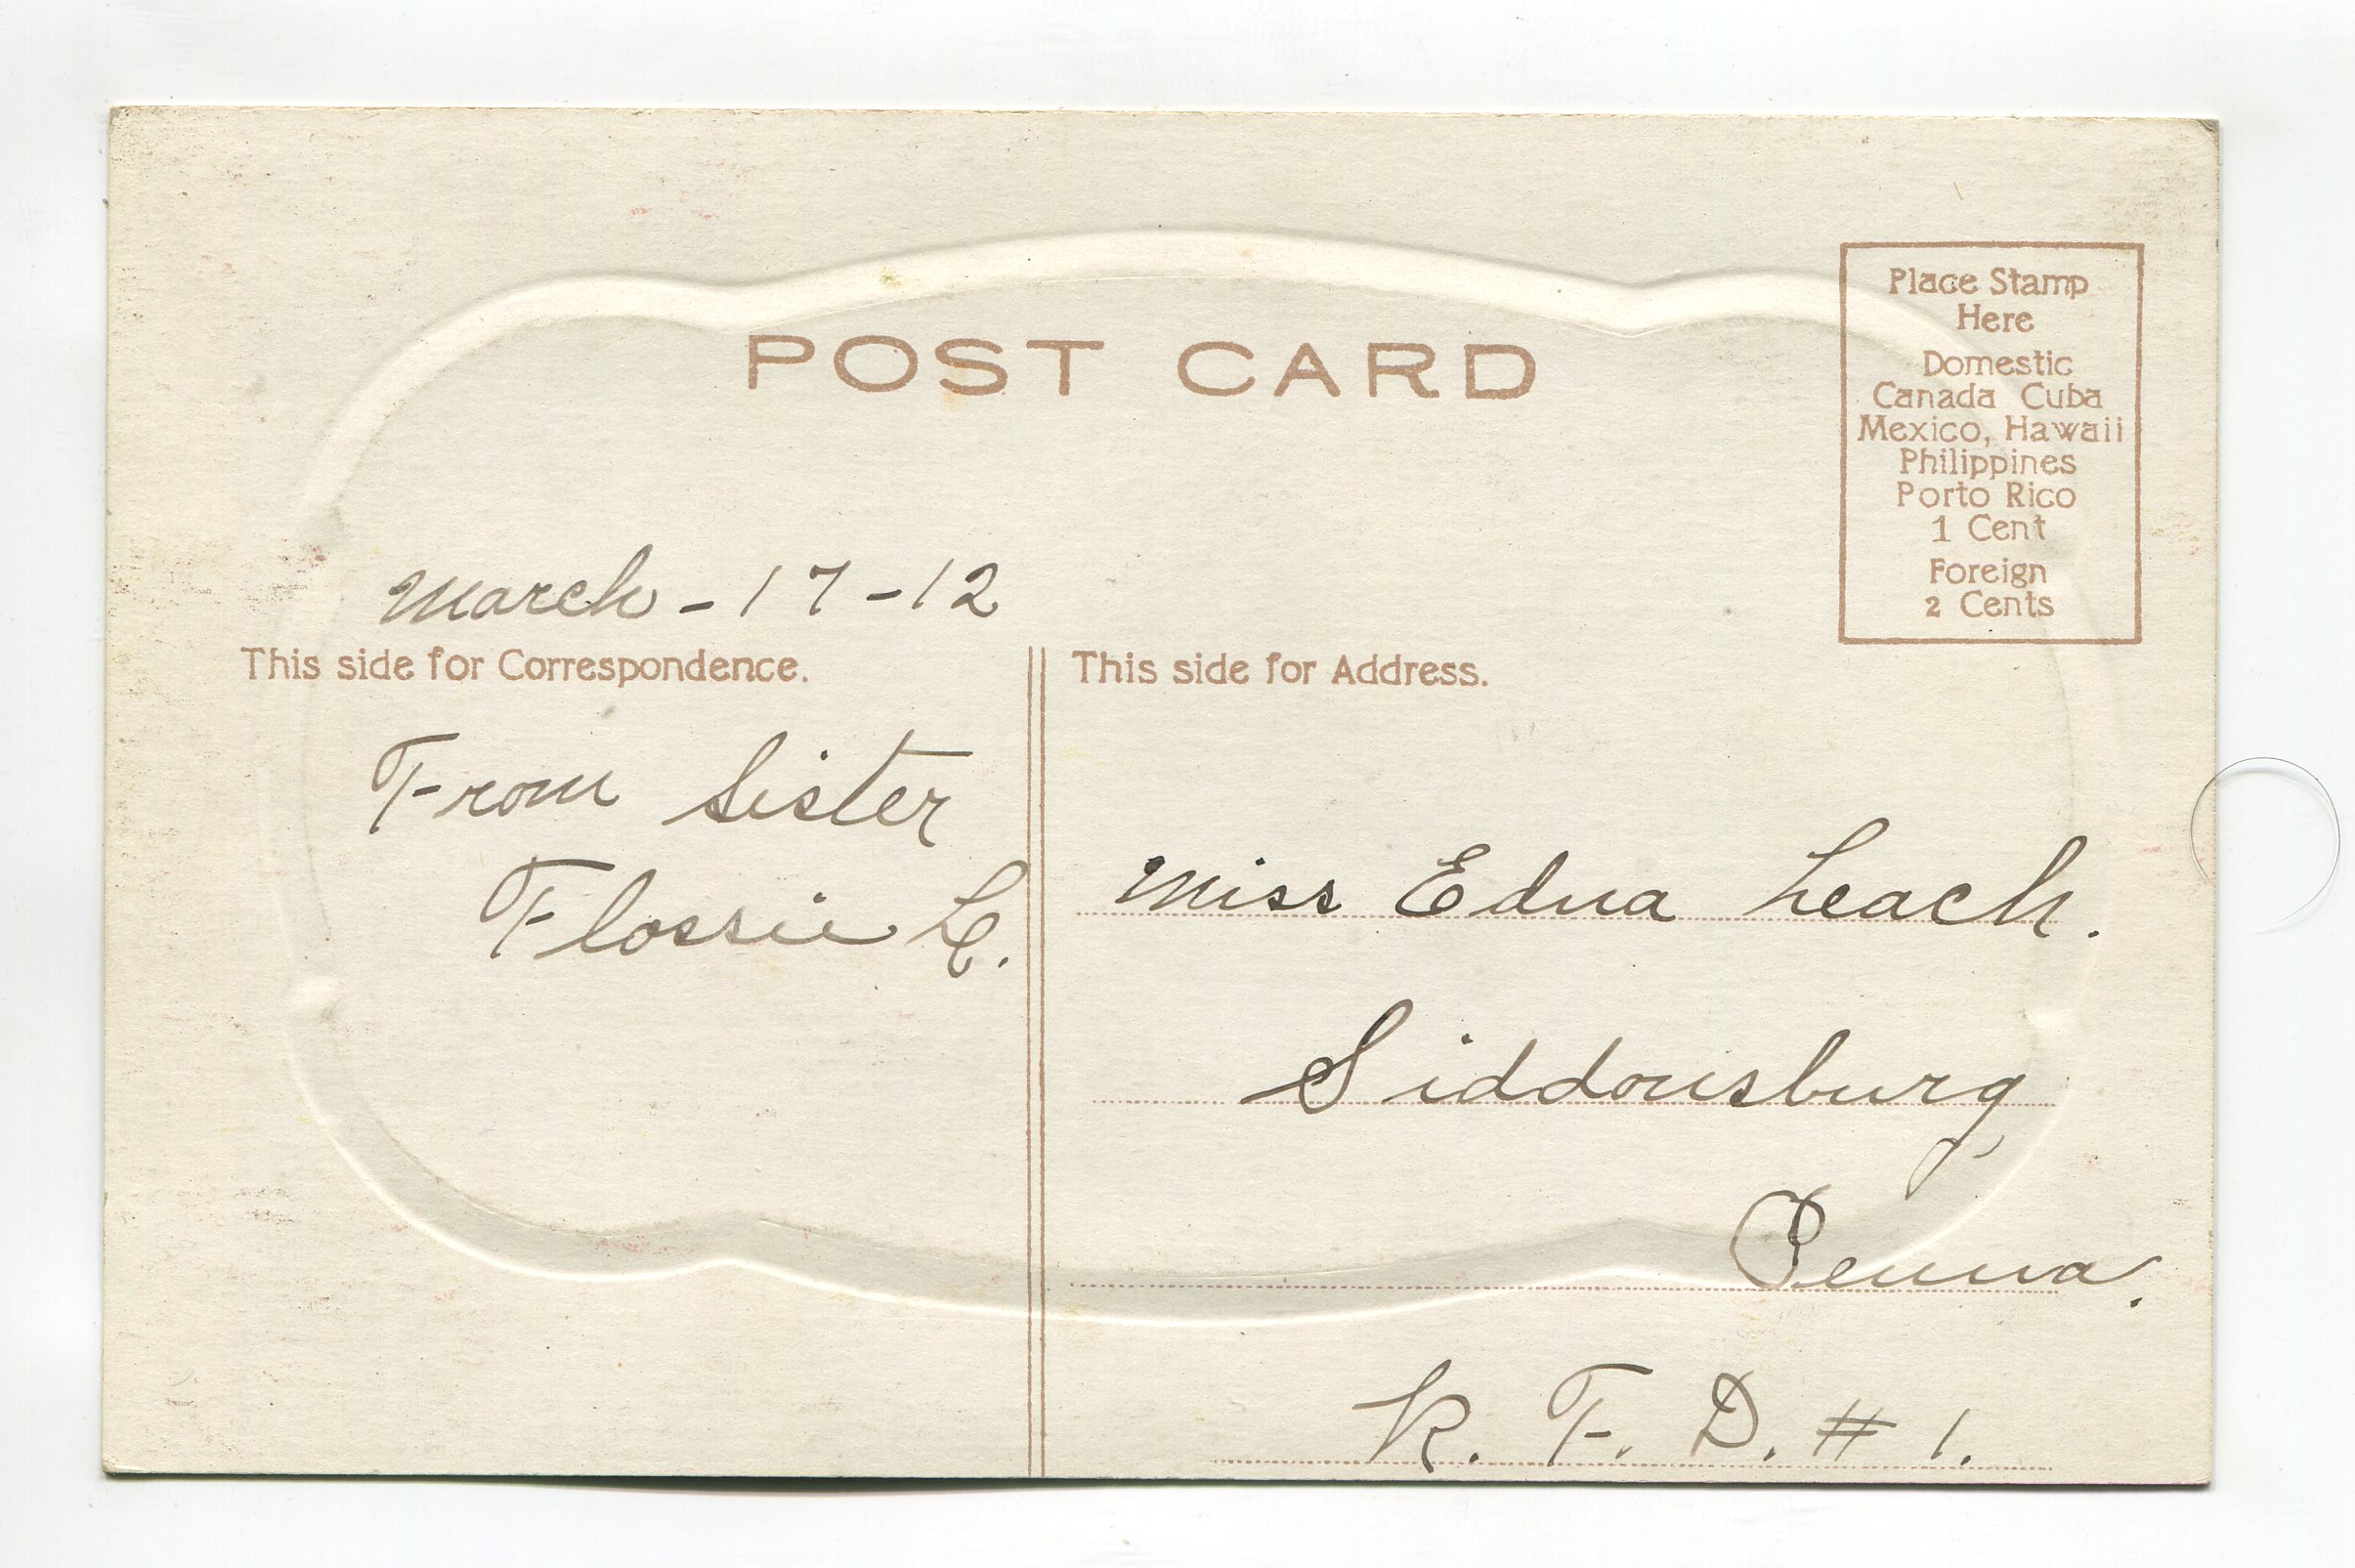 POST CARD
Place Stamp
Here
Domestic
Canada Cuba
Mexico, Hawaii
Philippines
Porto Rico
1 Cent
Foreign
2 Cents
March - 17 - 12
This side for Correspondence.
From Sister
Flossie L.
This side for Address.
Miss Edna Leach.
Siddonsburg
Penna.
R. F. D. # 1.